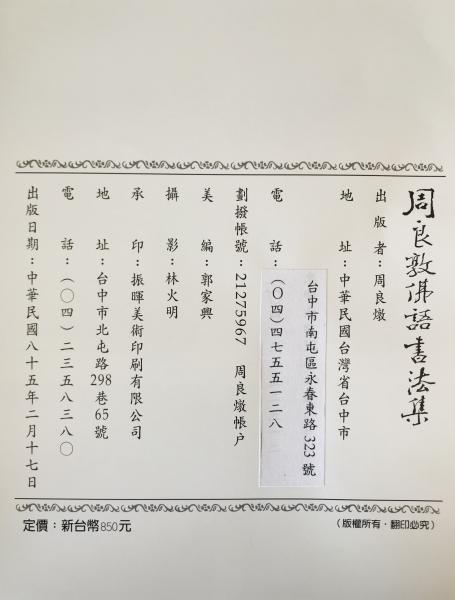 周良敦佛語書法集
出版者：周良燉
地址：中華民國台灣省台中市
台中市南屯區永春東路323號
電話：(○四)四七五五一二八
劃撥帳號：21275967 周良燉帳户
美編：郭家興
攝影：林火明
承印：振暉美術印刷有限公司
地址：台中市北屯路298巷65號
電話：(○四)二三五八三八○
出版日期：中華民國八十五年二月十七日
定價：新台幣850元
(版權所有·翻印必究)